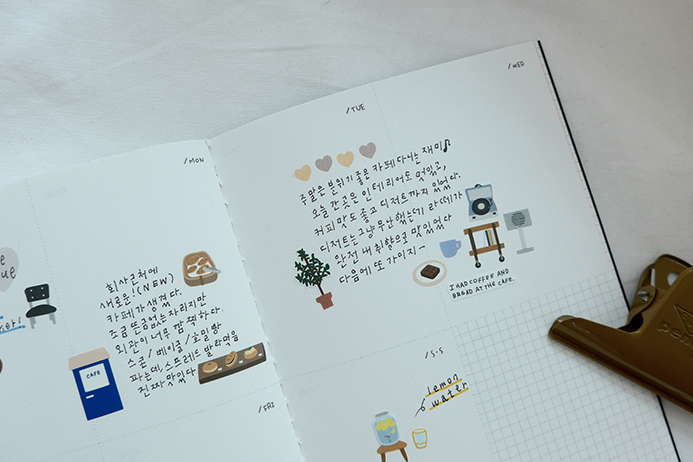 /MON
회사근처에
새로운! (NEW)
카페가 생겼다.
조금 뜬금없는 자리지만
외관이 너무 깜찍하다.
스콘/베이글/소일랑
파는데, 스프레드 발라먹음
진짜 맛있다
CAFE
/TUE
주말은 분위기 좋은 카페 다니는 재미♪
오늘 간 곳은 인테리어도 멋있고,
커피 맛도 좋고 디저트까지 있었다.
디저트는 그냥 무난했는데 라떼가
완전 내 취향으로 맛있었다
다음에 또 가야지~
I HAD COFFEE AND
BREAD AT THE CAFE.
/WED
/FRI
/S·S
lemon
water